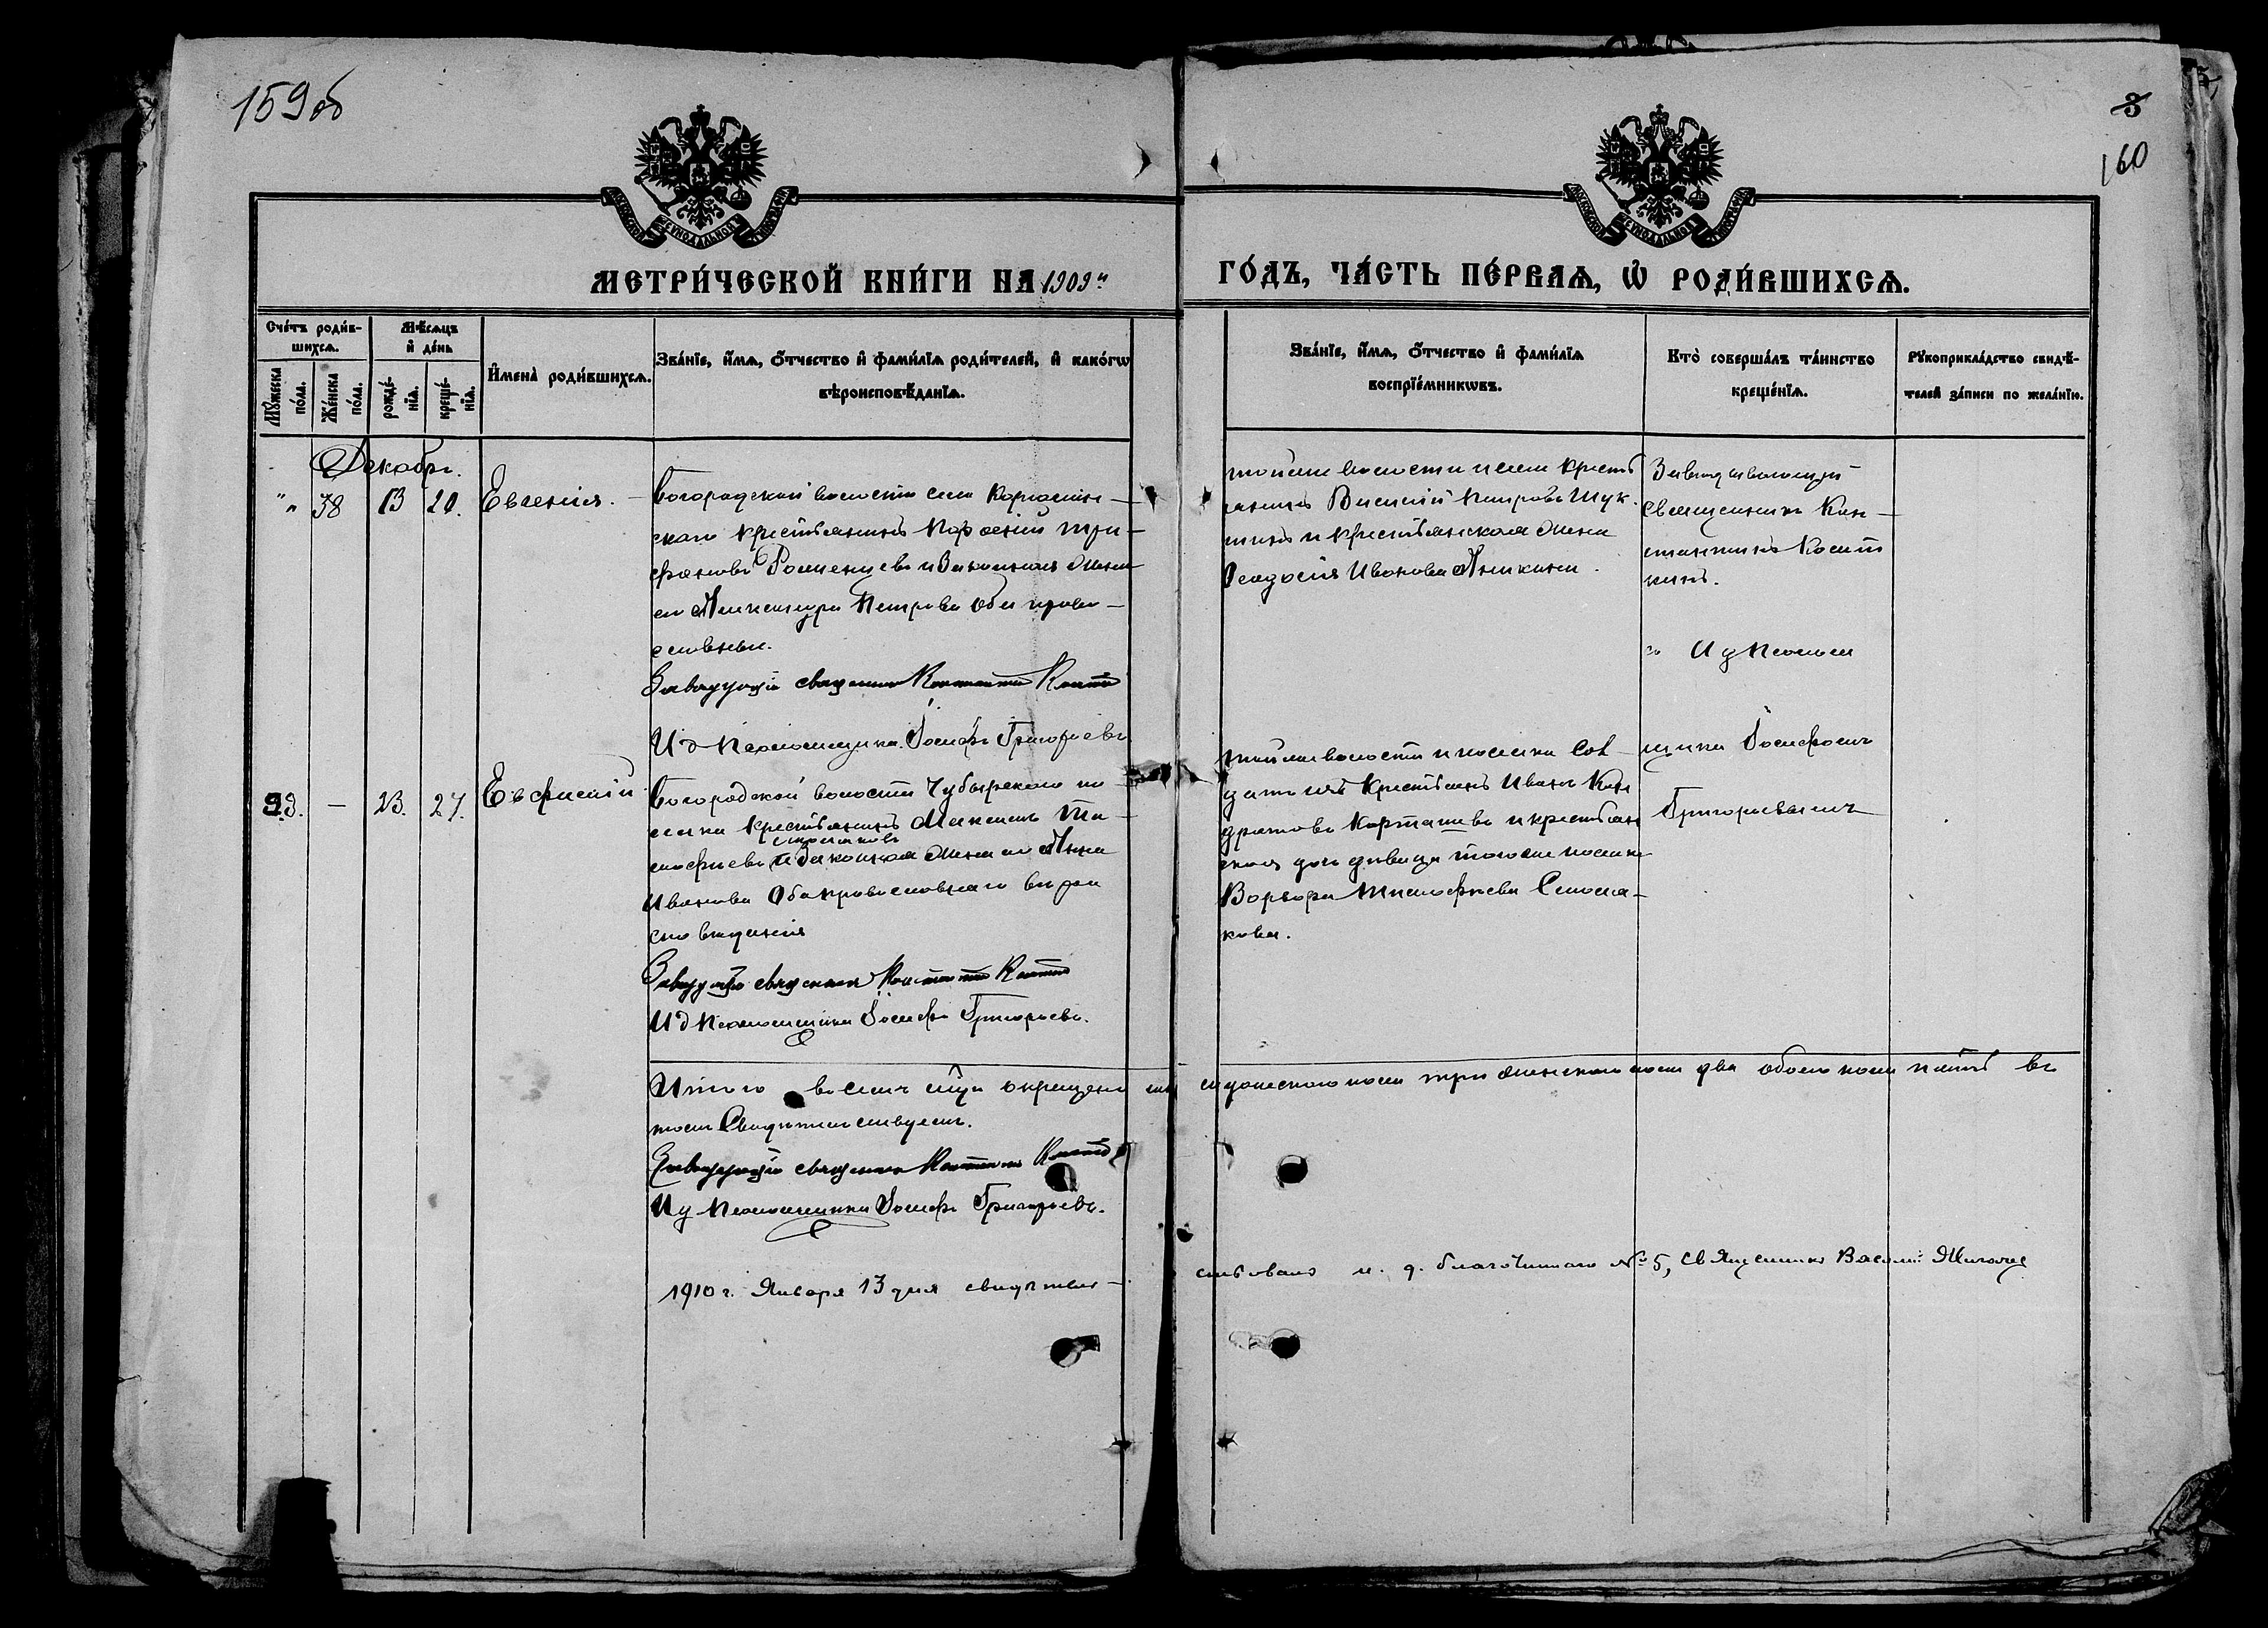 159 об
3
160
МОСКОВСКОЙ СѴНОДАЛЬНОЙ ТИПОГРАФІИ
МОСКОВСКОЙ СѴНОДАЛЬНОЙ ТИПОГРАФІИ
МЕТРИ́ЧЕСКОЙ КНИ́ГИ НА 1909 г.
ГО́ДЪ, ЧА́СТЬ ПЕ́РВАѦ, Ѡ҆ РОДИ́ВШИХСѦ.
Сче́тъ роди́в-
шихсѧ.
Мꙋ́жеска по́ла.
Же́нска по́ла.
Мѣ́сѧцъ
и҆ де́нь
рожде́-
нїѧ.
креще́-
нїѧ.
И҆мена̀ роди́вшихсѧ.
Зва́нїе, и҆́мѧ, ѻ҆́тчество и҆ фами́лїѧ роди́телей, и҆ како́гѡ
вѣроисповѣ́данїѧ.
Зва́нїе, и҆́мѧ, ѻ҆́тчество и҆ фами́лїѧ
воспрїе́мникѡвъ.
Кто̀ соверша́лъ та́инство
креще́нїѧ.
Рꙋкоприкла́дство свидѣ́-
телей за́писи по жела́нїю.
Декабрь.
" 38 13 20. Евгенія.
Богородской волости села Каргасин-
скаго крестьянинъ Парфеній Три-
фановъ Роменцевъ и Законная жена
его Александра Петрова Оба право-
славные.
Завѣдующій священникъ Константинъ
И д Псаломщика Іосифъ Григорьевъ.
той же волости и села крест
янинъ Василій Петровъ Шук-
шинъ и крестьянская жена
Феодосія Иванова Аникина.
Завѣдывающій
Священникъ Кон-
стантинъ
И д Псалом
щика Іосифомъ
Григорьевымъ
23. — 23. 27. Евфимій
Богородской волости Чубырскаго по-
селка крестьянинъ Максимъ Ти-
мофѣевъ и Законная жена его Анна
Иванова Оба православнаго вѣрои
споведанія
Завѣдующій священникъ Константинъ
И д Псаломщика Іосифъ Григорьевъ.
той же волости и поселка
крестьянъ Иванъ Кон
дратовъ Карташевъ и крестьян
ская дочь дѣвица того же поселка
Варвара Тимофѣева
кова.
Итого въ семъ м-цѣ окрещено мужескаго пола три женскаго пола два обоего пола пять въ
томъ Свидѣтельствуемъ.
Завѣдующій священникъ Константинъ
И д Псаломщика Іосифъ Григорьевъ.
1910 г. Января 13 дня свидѣтель-
ствовалъ и. д. благочиннаго № 5, Священникъ Василій